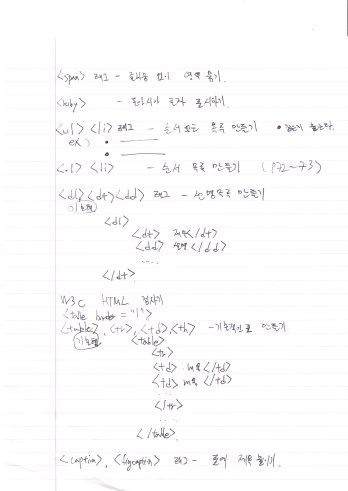 <span> 태그 - 줄바꿈 없이 영역 묶기.
<ruby> - 동아시아 글자 표시하기.
<ul> <li> 태그 - 순서 없는 목록 만들기 •
ex) •
•
<ol> <li> - 순서 목록 만들기 (p72~73)
<dl> <dt> <dd> 태그 - 설명목록 만들기
기본형
<dl>
<dt> 제목 </dt>
<dd> 설명 </dd>
....
</dt>
W3C HTML 검사기
<table border = "1">
<table>, <tr>, <td>, <th> - 기본적인 표 만들기
기본형 <table>
<tr>
<td> 내용 </td>
<td> 내용 </td>
...
</tr>
...
</table>
<caption>, <figcaption> 태그 - 표에 제목 붙이기.